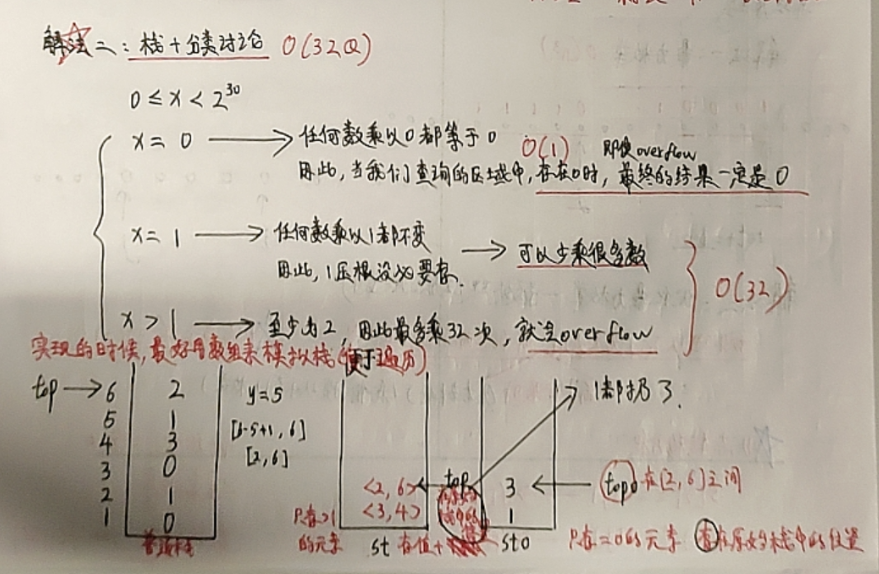 解法二：栈+分类讨论 O(32Q)
0 ≤ x < 2^30
x = 0 → 任何数乘以0都等于0 O(1) 即使overflow
因此,当我们查询的区域中,存在0时,最终的结果一定是0
x = 1 → 任何数乘以1都不变
因此,1压根没必要存. → 可以少乘很多数
O(32)
x > 1 → 至少为2,因此最多乘32次,就是overflow
实现的时候,最好用数组来模拟栈(便于遍历)
top → 6 2 y=5 1都扔了.
5 1 [6-5+1, 6]
4 3 [2,6]
3 0 <2,6> ← top 3 ← top0 在[2,6]之间
2 1 <3,4> 1
1 0 只存>1的元素 st 存值+ st0 只存=0的元素 存在原始栈中的位置
普通栈